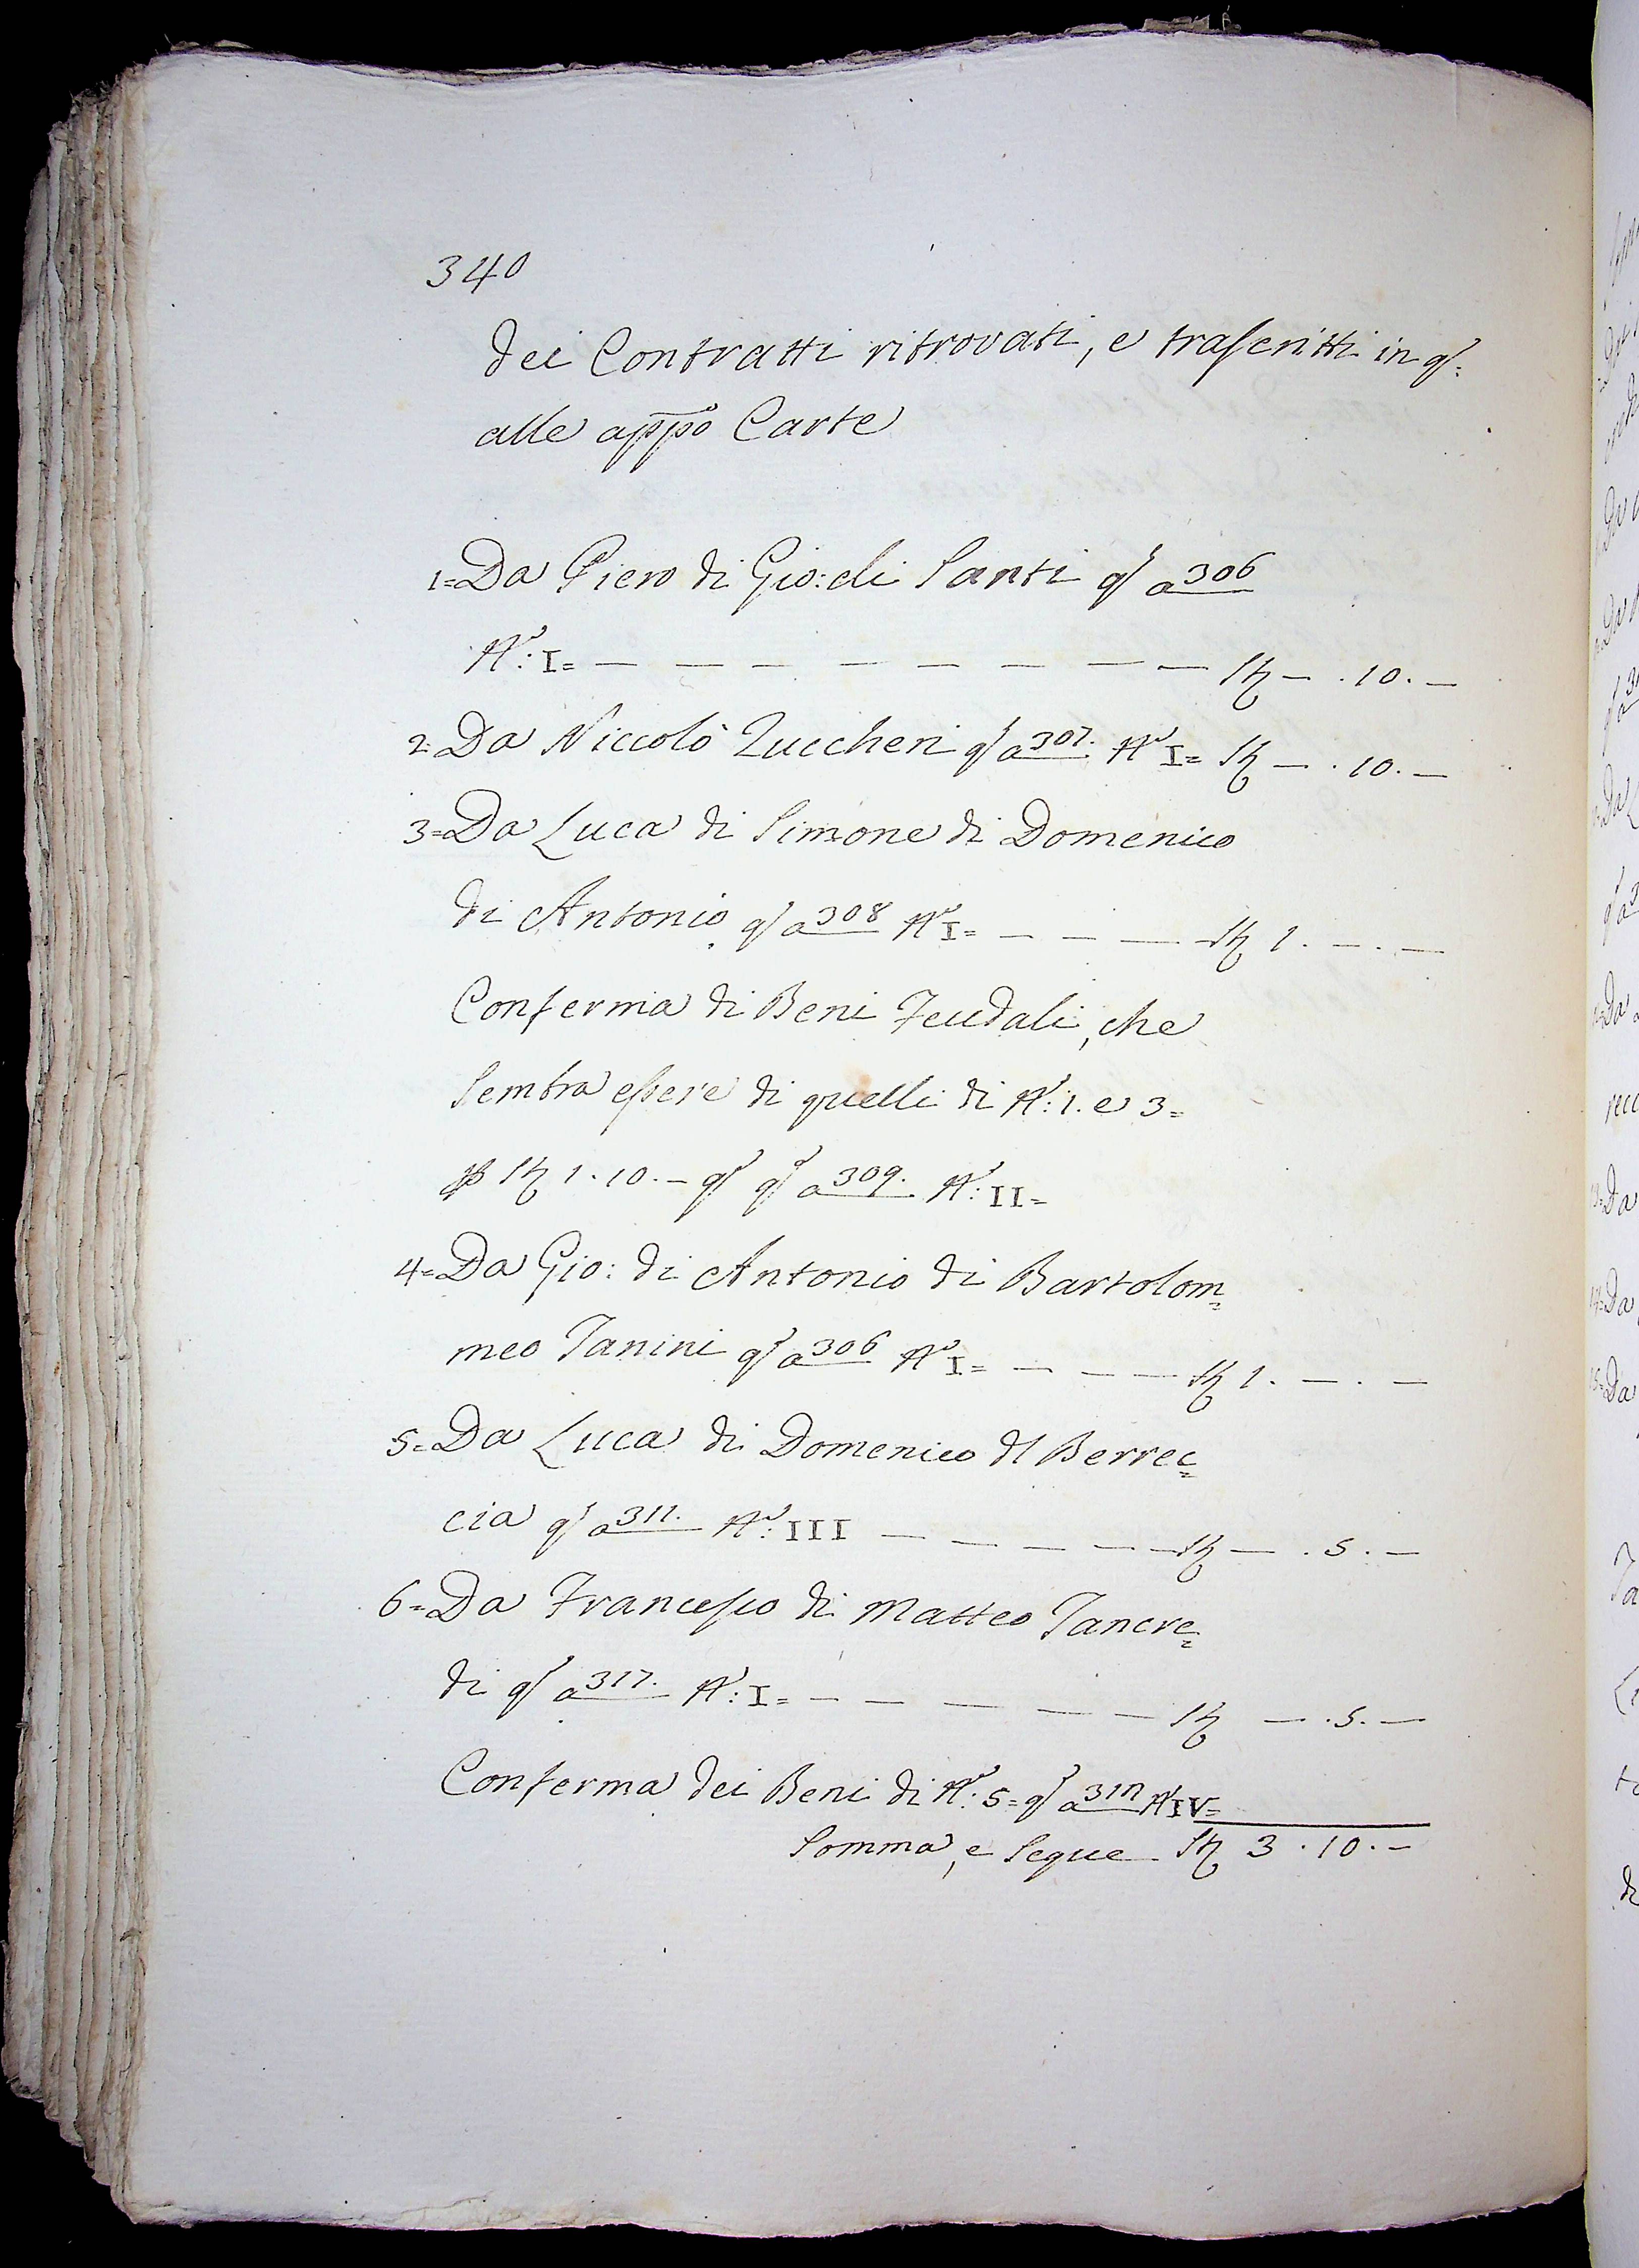 340
dei Contratti ritrovati, e trascritti in q.
alle appo Carte
1= Da Piero di Gio: di Santi q a 306
No: I= — — — — — — — — St — . 10. —
2= Da Niccolò Zuccheri q a 307. No I= St — . 10. —
3= Da Luca di Simone di Domenico
di Antonio q a 308 No I= — — — St 1. — . —
Conferma di Beni Feudali, che
Sembra essere di quelli di No: 1. e 3=
p St 1. 10. — q q a 309. No: II=
4= Da Gio: di Antonio di Bartolom=
meo Tanini q a 306 No I= — — — St 1. — . —
5= Da Luca di Domenico dl Berrec=
cia q a 311. No: III — — — — — St — . 5. —
6= Da Francesco di Matteo Tancre=
di q a 317. No: I= — — — — — St — . 5. —
Conferma dei Beni di No: 5= q a No IV=
Somma, e Segue St 3 . 10. —